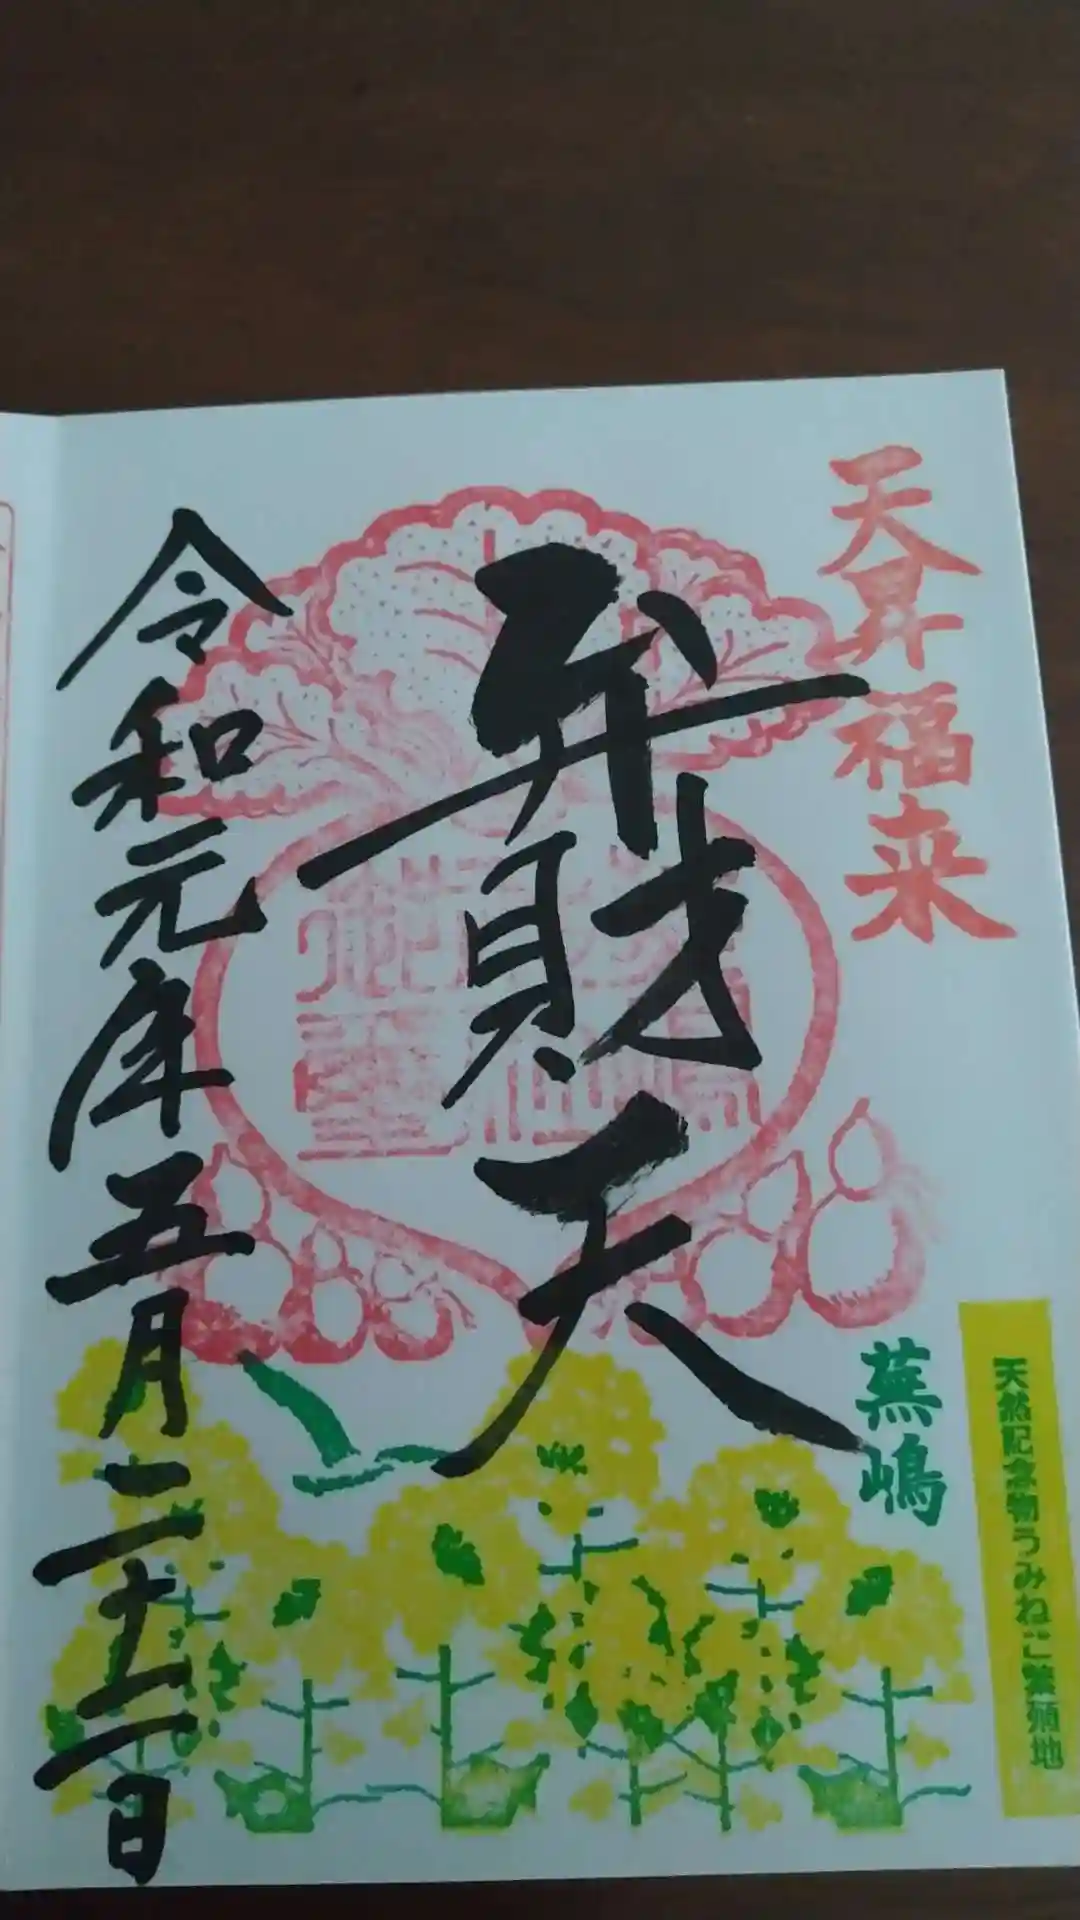 天昇福来
弁財天
蕪嶋
天然記念物うみねこ繁殖地
令和元年五月二十二日